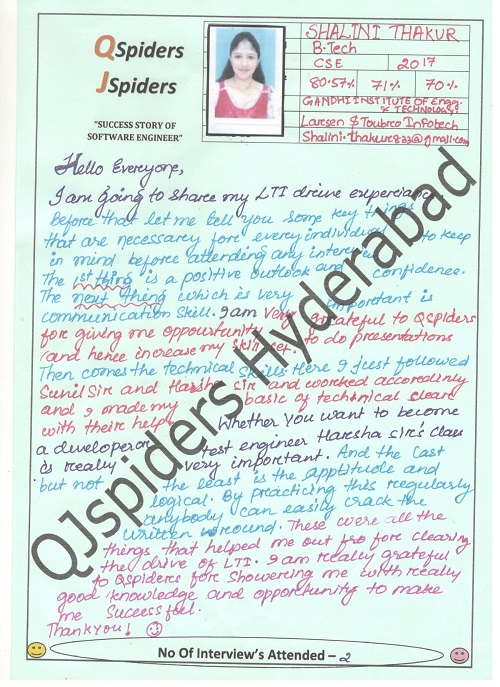 QSpiders
JSpiders
"SUCCESS STORY OF
SOFTWARE ENGINEER"
SHALINI THAKUR
B.Tech
CSE 2017
80.57% 71% 70%
GANDHI INSTITUTE OF Engg.
& TECHNOLOGY
Larsen & Toubro Infotech
Shalini.thakur833@gmail.com
Hello Everyone,
I am going to share my LTI drive experience
Before that let me tell you some key things
that are necessary for every individual to keep
in mind before attending any
The 1st thing is a positive outlook and confidence.
The next thing which is very important is
communication skill. I am very grateful to QSpiders
for giving me oppourtunity to do presentations
(and hence increase my skill
Then comes the technical skills. Here I just followed
Sunil Sir and Harsha sir and worked accordinly
and I made my basic of technical clear
with their help Whether You want to become
a developer test engineer Harsha sir's class
is really very important. And the last
but not the least is the apptitude and
logical. By practicing this regularly
anybody can easily crack the
written round. These were all the
things that helped me out for clearing
the drive of LTI. I am really grateful
to QSpiders for Showering me with really
good knowledge and opportunity to make
me Successful.
Thankyou!
No Of Interview's Attended – 2
QJspiders Hyderabad